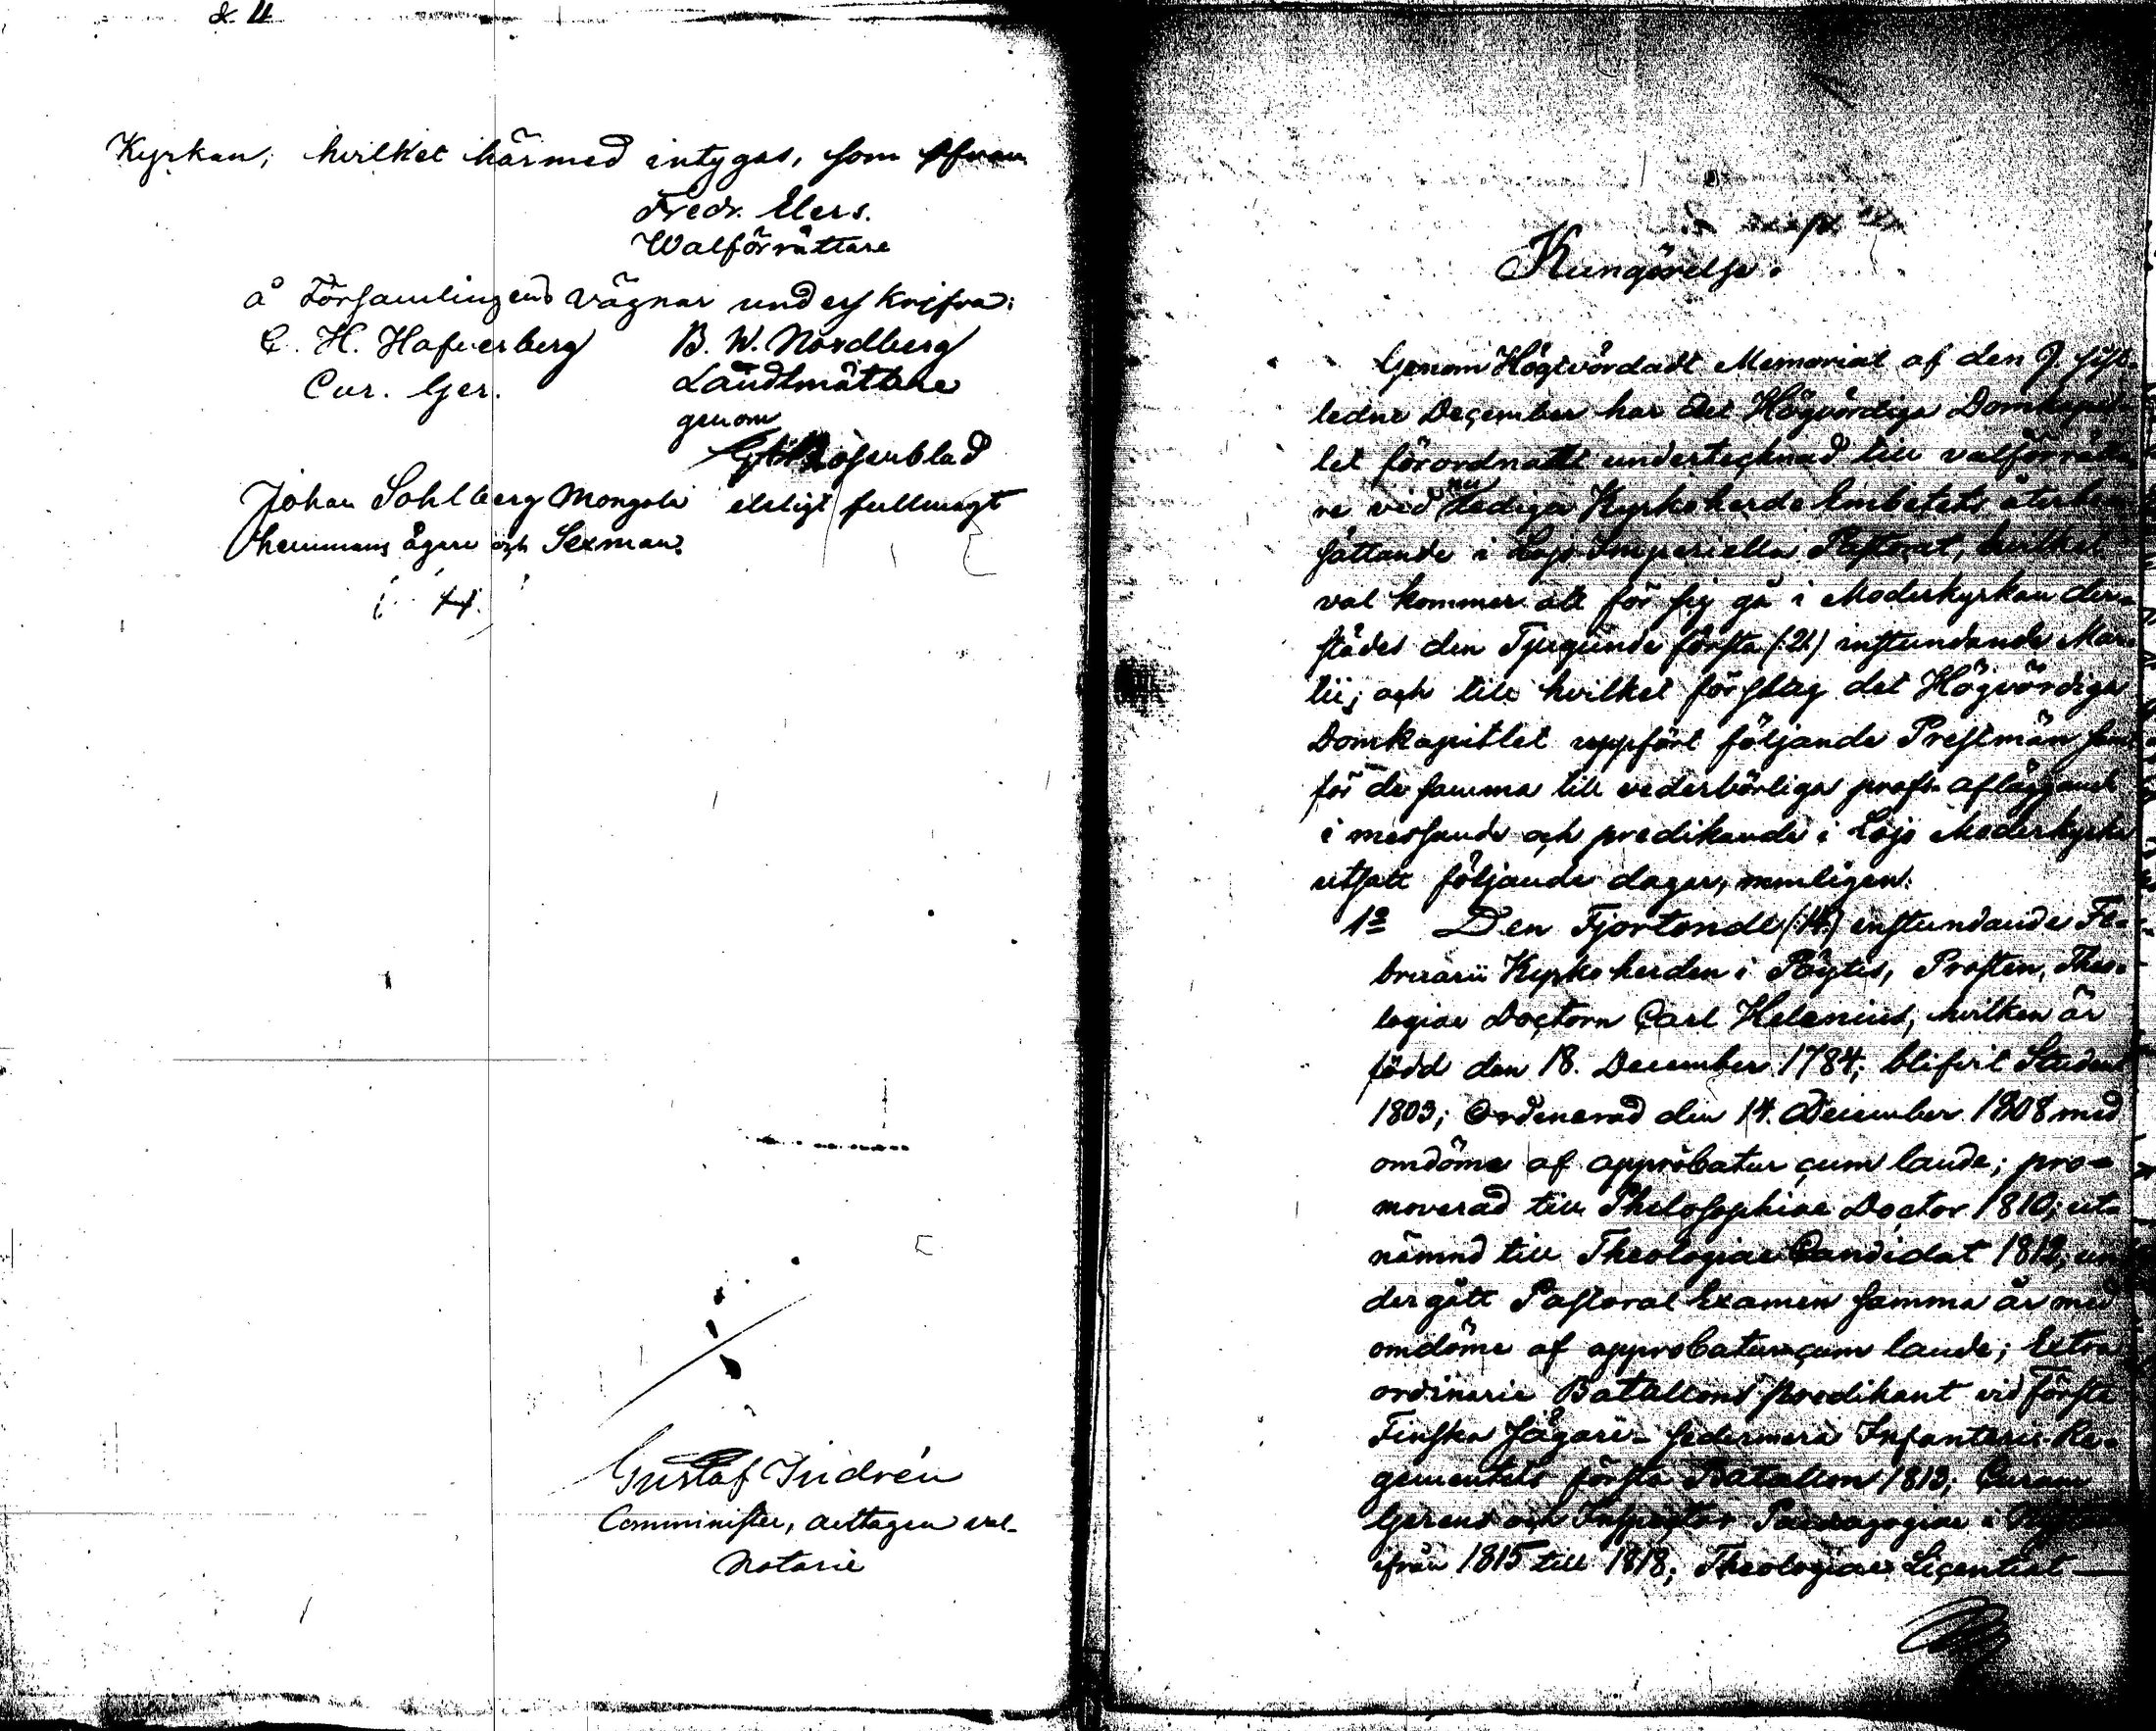 Kyrkan; hvilket härmed intygas, som ofvan
Fredr. Elers.
Walförrättare
å Församlingens vägnar underskrifva:
C. H. Hafverberg
Cur. Ger.
B. W. Nordberg
Landtmätare
genom
Rosenblad
Johan Sohlberg Mongola
enligt fullmagt
hemmans ägare och Sexman.
Gustaf Indrén
Comminister, anttagen val-
Notarie
Kungörelse.
Genom Högtvördadt Memorial af den 9. sist-
ledne December har det Högvördiga Domkapit-
let förordnatt undertecknad till valförrätta-
re vid nu lediga Kyrkoherde Embetets återbe-
sättande i Lojo Imperiella Pastorat, hvilket
val kommer att för sig gå i Moderkyrkan der-
städes den Tjugunde första (:21:) instundande Mar-
tii; och till hvilket förslag det Högvördiga
Domkapitlet uppfört följande Prestmän samt
för de samma till vederbörliga profs afläggande
i messande och predikande i Lojo Moderkyrka
utsatt följande dagar, nemligen:
1o Den Fjortonde (:14:) instundande Fe-
bruarii Kyrkoherden i Pöytis, Prosten, Theo-
logiae Doctorn Carl Helenius, hvilken är
född den 18. December 1784; blifvit Student
1803; Ordinerad den 14. December 1808 med
omdöme af approbatur cum laude; pro-
moverad till Philosophiae Doctor 1810; ut-
nämnd till Theologiae Candidat 1812; un-
dergått Pastoral Examen samma år med
omdöme af approbatur cum laude; Extra
ordinarie Bataillons predikant vid första
Finska Jägare- sedermera Infanterie-Re-
gementets första Batallion 1813; Curam
Gerens och Inspector Paedagogiae i
ifrån 1815 till 1818; Theologiae Licentiat